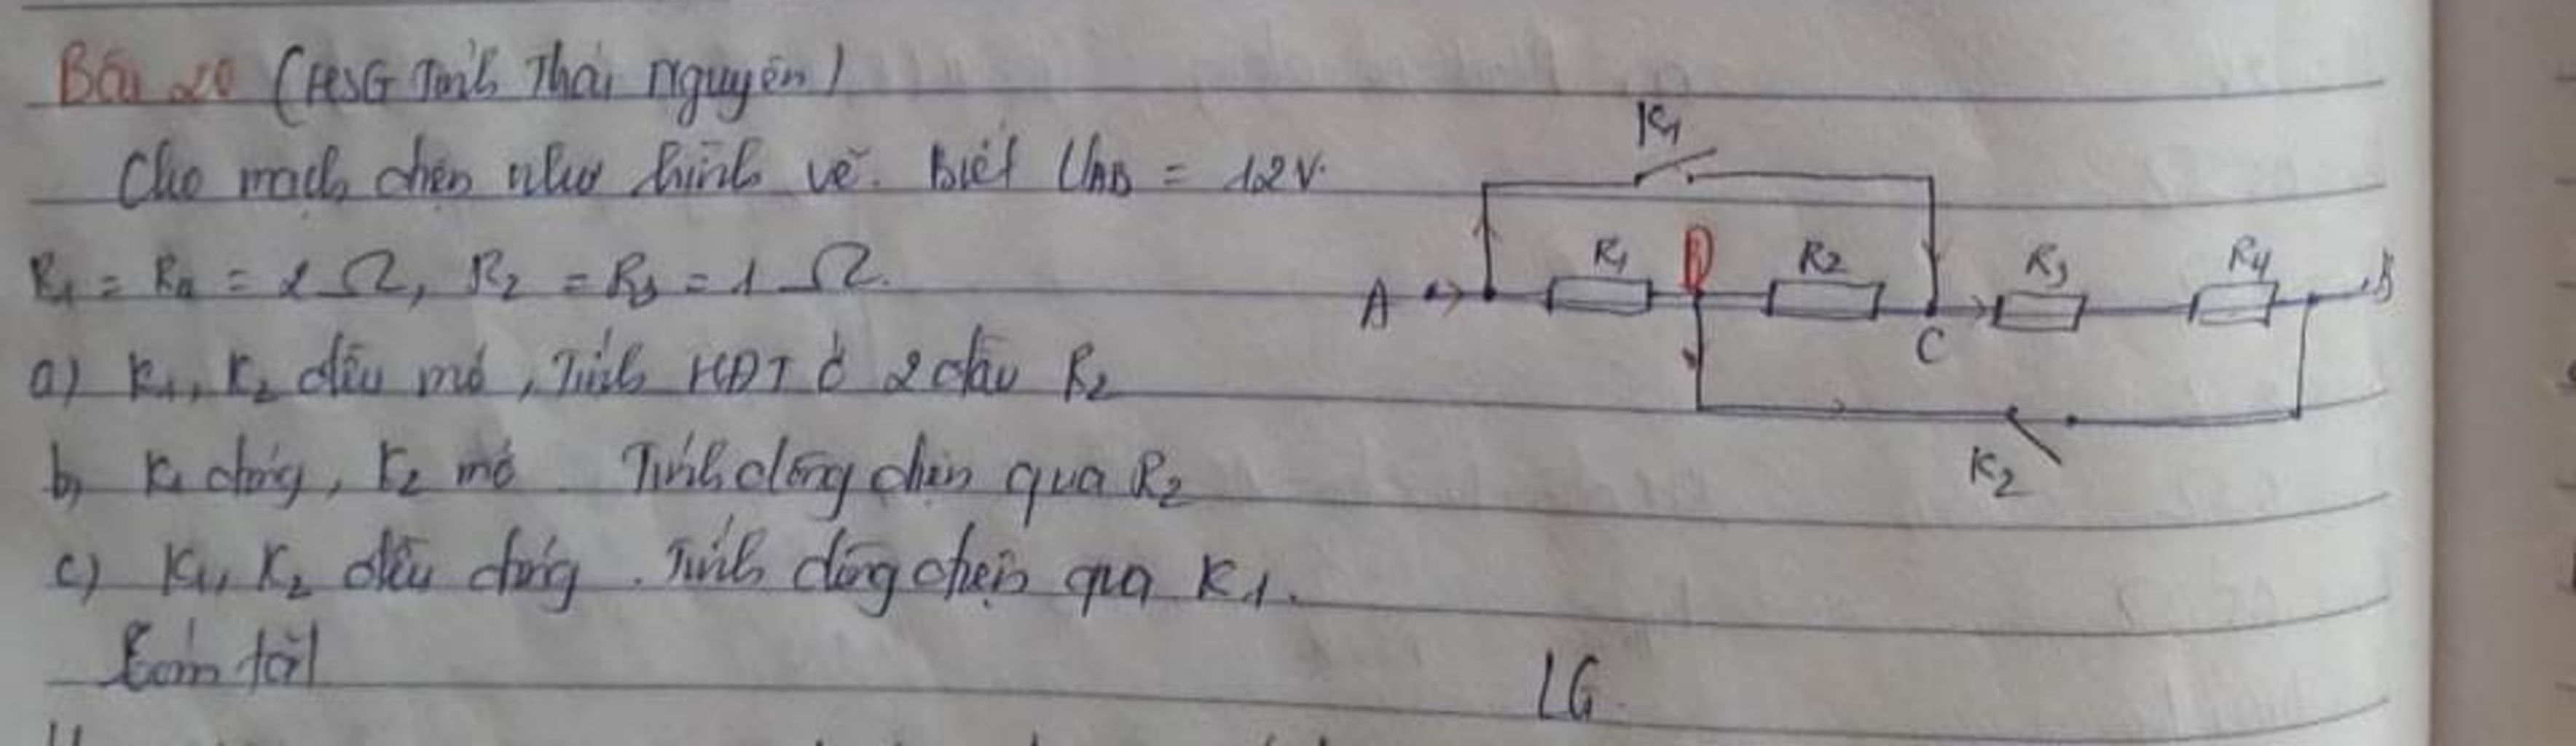 Bài 20 (HSG Tỉnh Thái Nguyên)
Cho mạch điện như hình vẽ. Biết UAB = 12V.
R1 = R4 = 2 Ω, R2 = R3 = 1 Ω.
a) K1, K2 đều mở, Tính HĐT ở 2 đầu R2
b) K1 đóng, K2 mở. Tính dòng điện qua R2
c) K1, K2 đều đóng. Tính dòng điện qua K1.
Tóm tắt
LG
K1
R1 D R2 R3 R4
A C B
K2